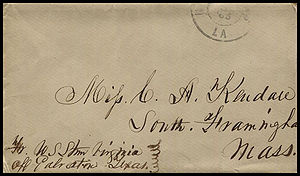 63
LA
Miss C. A. Kendall
South Framingham
Mass.
Fr. U.S. Stmr Virginia
off Galveston Texas